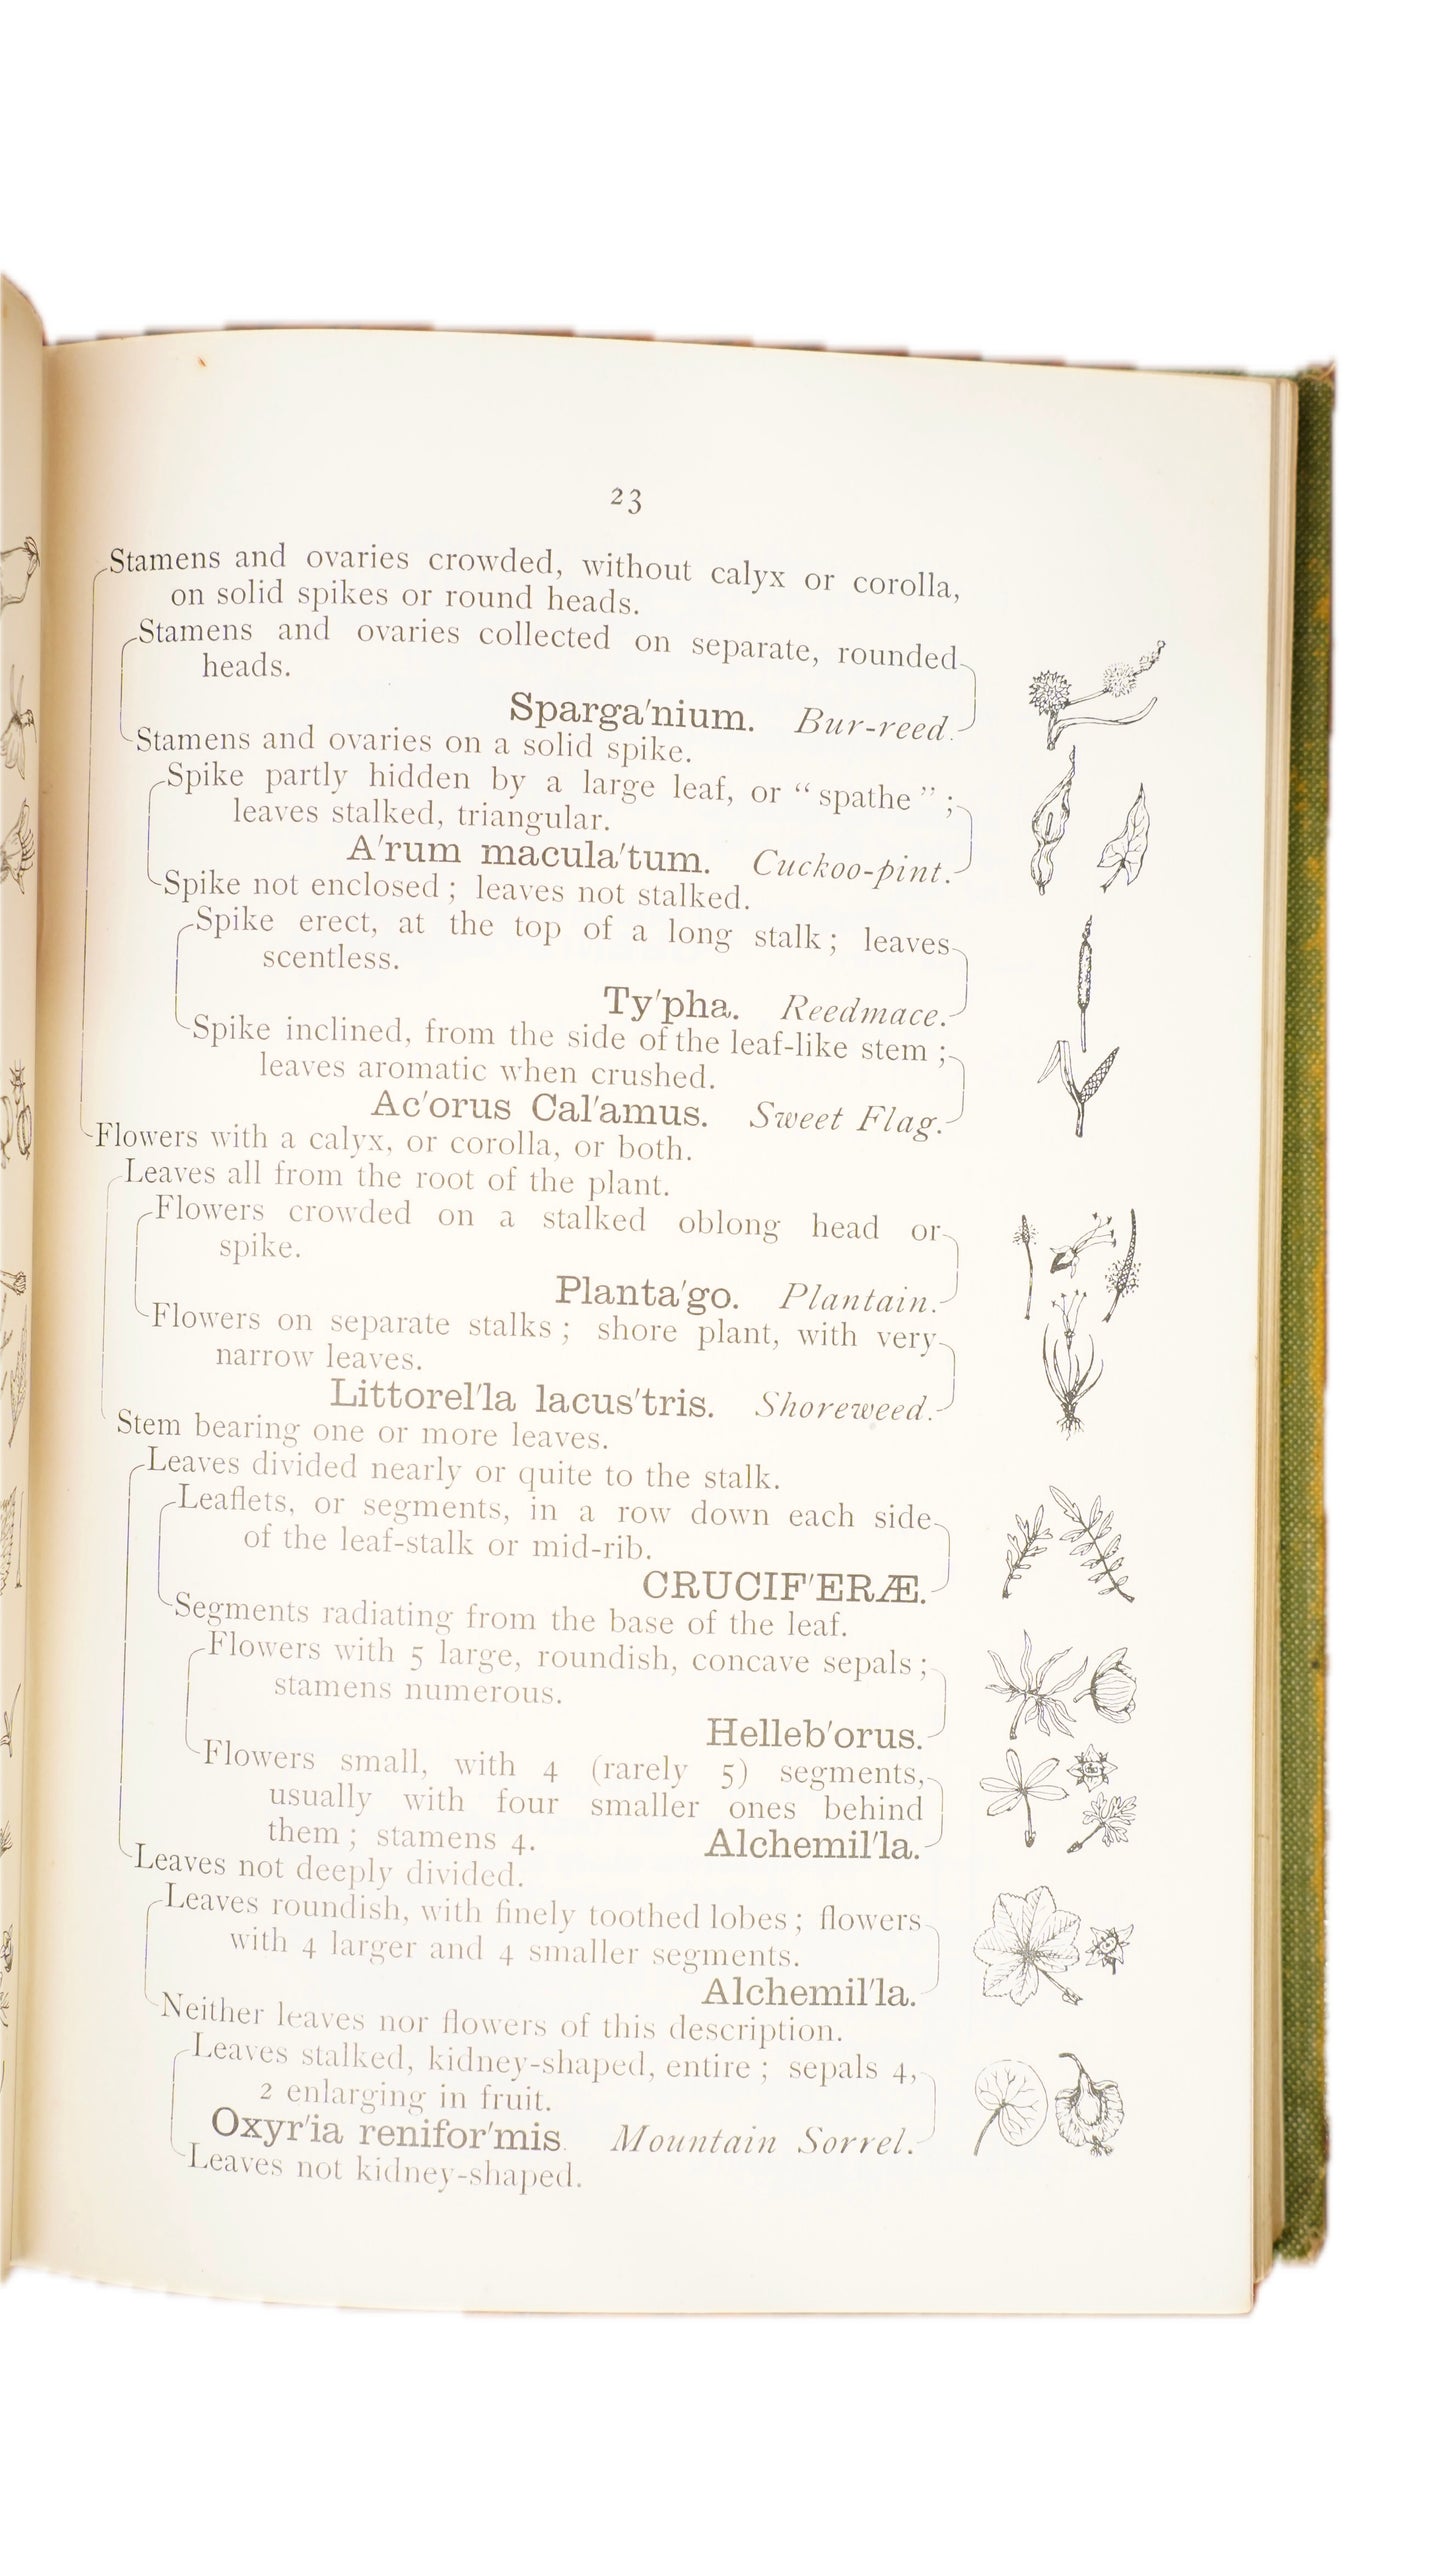 23
Stamens and ovaries crowded, without calyx or corolla,
on solid spikes or round heads.
Stamens and ovaries collected on separate, rounded
heads.
Sparga′nium. Bur-reed.
Stamens and ovaries on a solid spike.
Spike partly hidden by a large leaf, or “ spathe ” ;
leaves stalked, triangular.
A′rum macula′tum. Cuckoo-pint.
Spike not enclosed ; leaves not stalked.
Spike erect, at the top of a long stalk ; leaves
scentless.
Ty′pha. Reedmace.
Spike inclined, from the side of the leaf-like stem ;
leaves aromatic when crushed.
Ac′orus Cal′amus. Sweet Flag.
Flowers with a calyx, or corolla, or both.
Leaves all from the root of the plant.
Flowers crowded on a stalked oblong head or
spike.
Planta′go. Plantain.
Flowers on separate stalks ; shore plant, with very
narrow leaves.
Littorel′la lacus′tris. Shoreweed.
Stem bearing one or more leaves.
Leaves divided nearly or quite to the stalk.
Leaflets, or segments, in a row down each side
of the leaf-stalk or mid-rib.
CRUCIF′ERÆ.
Segments radiating from the base of the leaf.
Flowers with 5 large, roundish, concave sepals ;
stamens numerous.
Helleb′orus.
Flowers small, with 4 (rarely 5) segments,
usually with four smaller ones behind
them ; stamens 4. Alchemil′la.
Leaves not deeply divided.
Leaves roundish, with finely toothed lobes ; flowers
with 4 larger and 4 smaller segments.
Alchemil′la.
Neither leaves nor flowers of this description.
Leaves stalked, kidney-shaped, entire ; sepals 4,
2 enlarging in fruit.
Oxyr′ia renifor′mis. Mountain Sorrel.
Leaves not kidney-shaped.